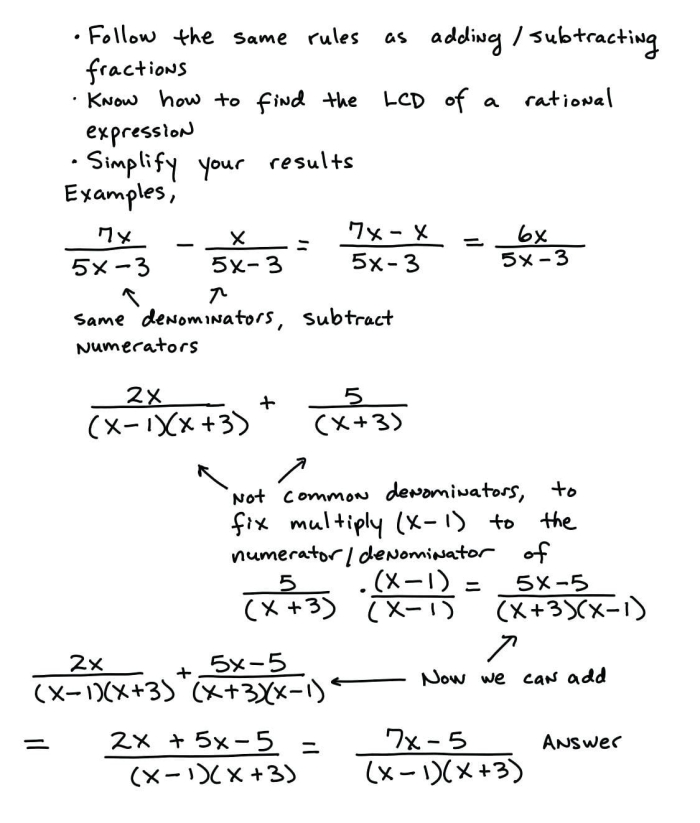 · Follow the same rules as adding / subtracting
fractions
· Know how to find the LCD of a rational
expression
· Simplify your results
Examples,
7x/(5x-3) - x/(5x-3) = (7x-x)/(5x-3) = 6x/(5x-3)
same denominators, subtract
numerators
2x/((x-1)(x+3)) + 5/(x+3)
Not common denominators, to
fix multiply (x-1) to the
numerator/denominator of
5/(x+3) · (x-1)/(x-1) = (5x-5)/((x+3)(x-1))
2x/((x-1)(x+3)) + (5x-5)/((x+3)(x-1)) ← Now we can add
= (2x+5x-5)/((x-1)(x+3)) = (7x-5)/((x-1)(x+3)) Answer